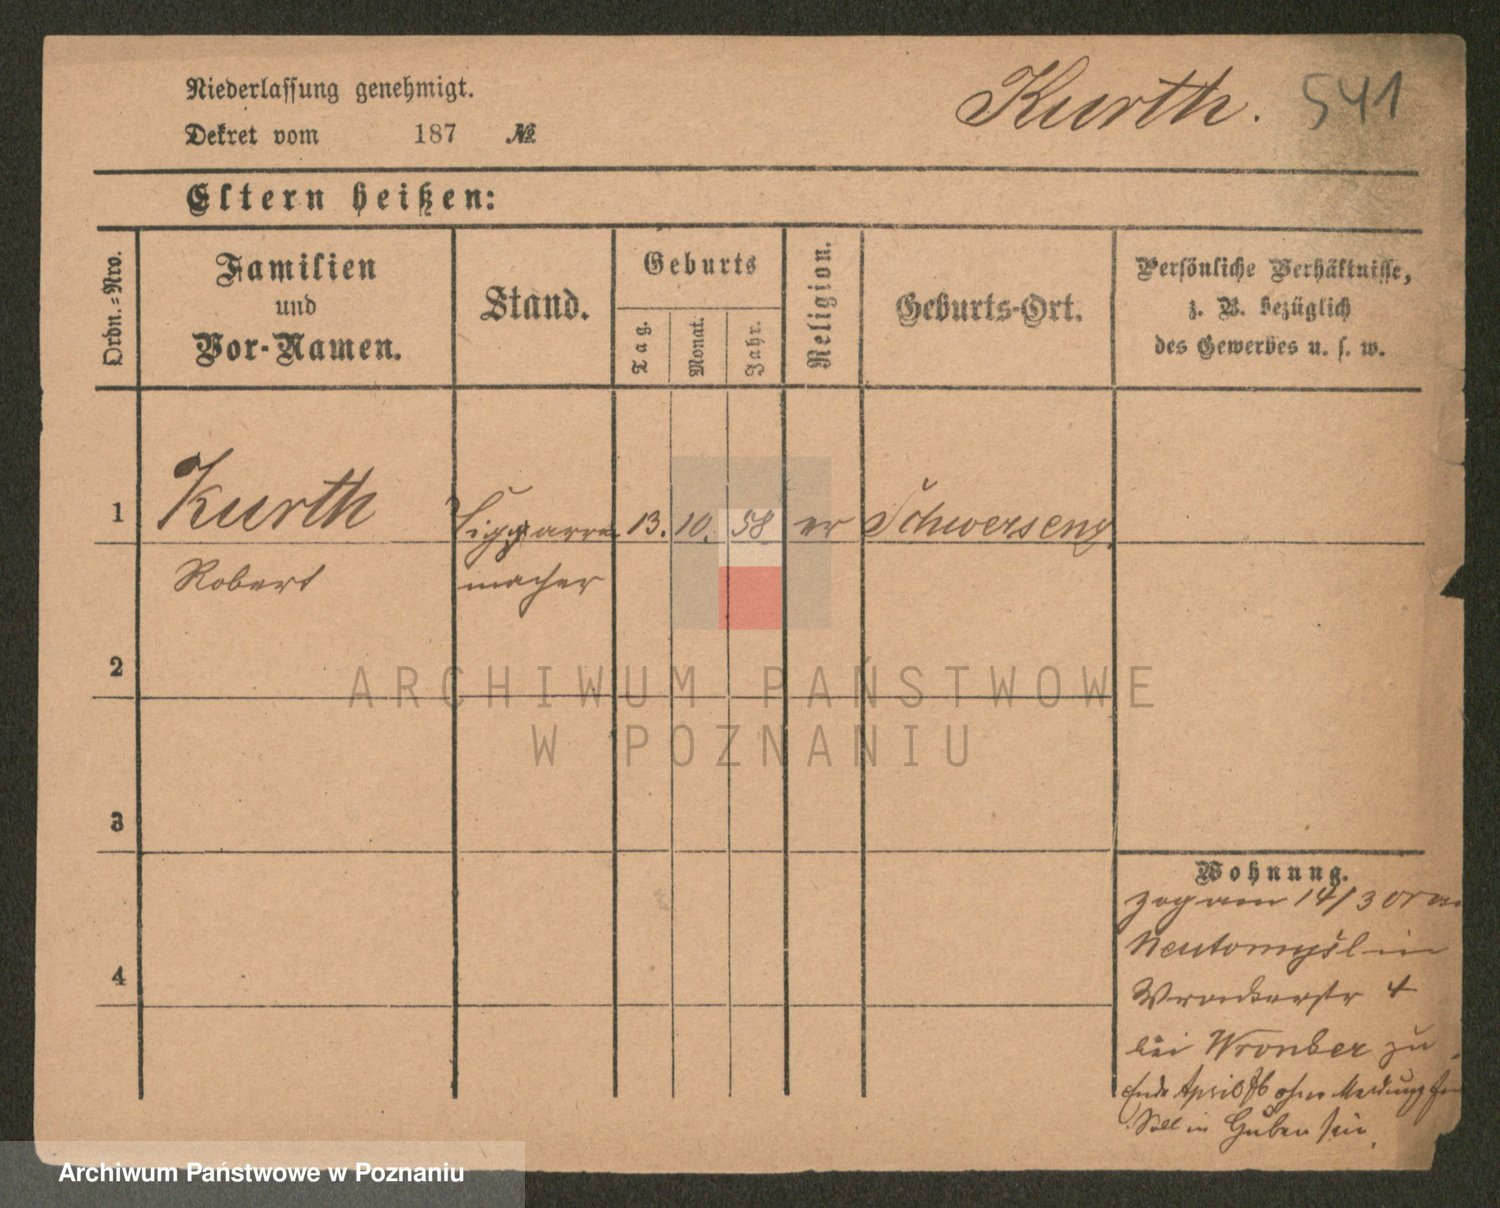 Niederlassung genehmigt.
Kurth. 541
Dekret vom 187 №
Eltern heißen:
Ordn.=Nro.
Familien und Vor-Namen.
Stand.
Geburts
Tag.
Monat.
Jahr.
Religion.
Geburts-Ort.
Persönliche Verhältnisse,
z. B. bezüglich
des Gewerbes u. s. w.
1 Kurth Ziggarren 13. 10. 58 ev Schwersenz.
Robert macher
2
3
4
Wohnung.
zog am 14/3 von
Neutomyśl in
Wronkerstr 4
bei Wronker zu.
Ende April ohne Meldung
Soll in Guben sein.
ARCHIWUM PAŃSTWOWE
W POZNANIU
Archiwum Państwowe w Poznaniu